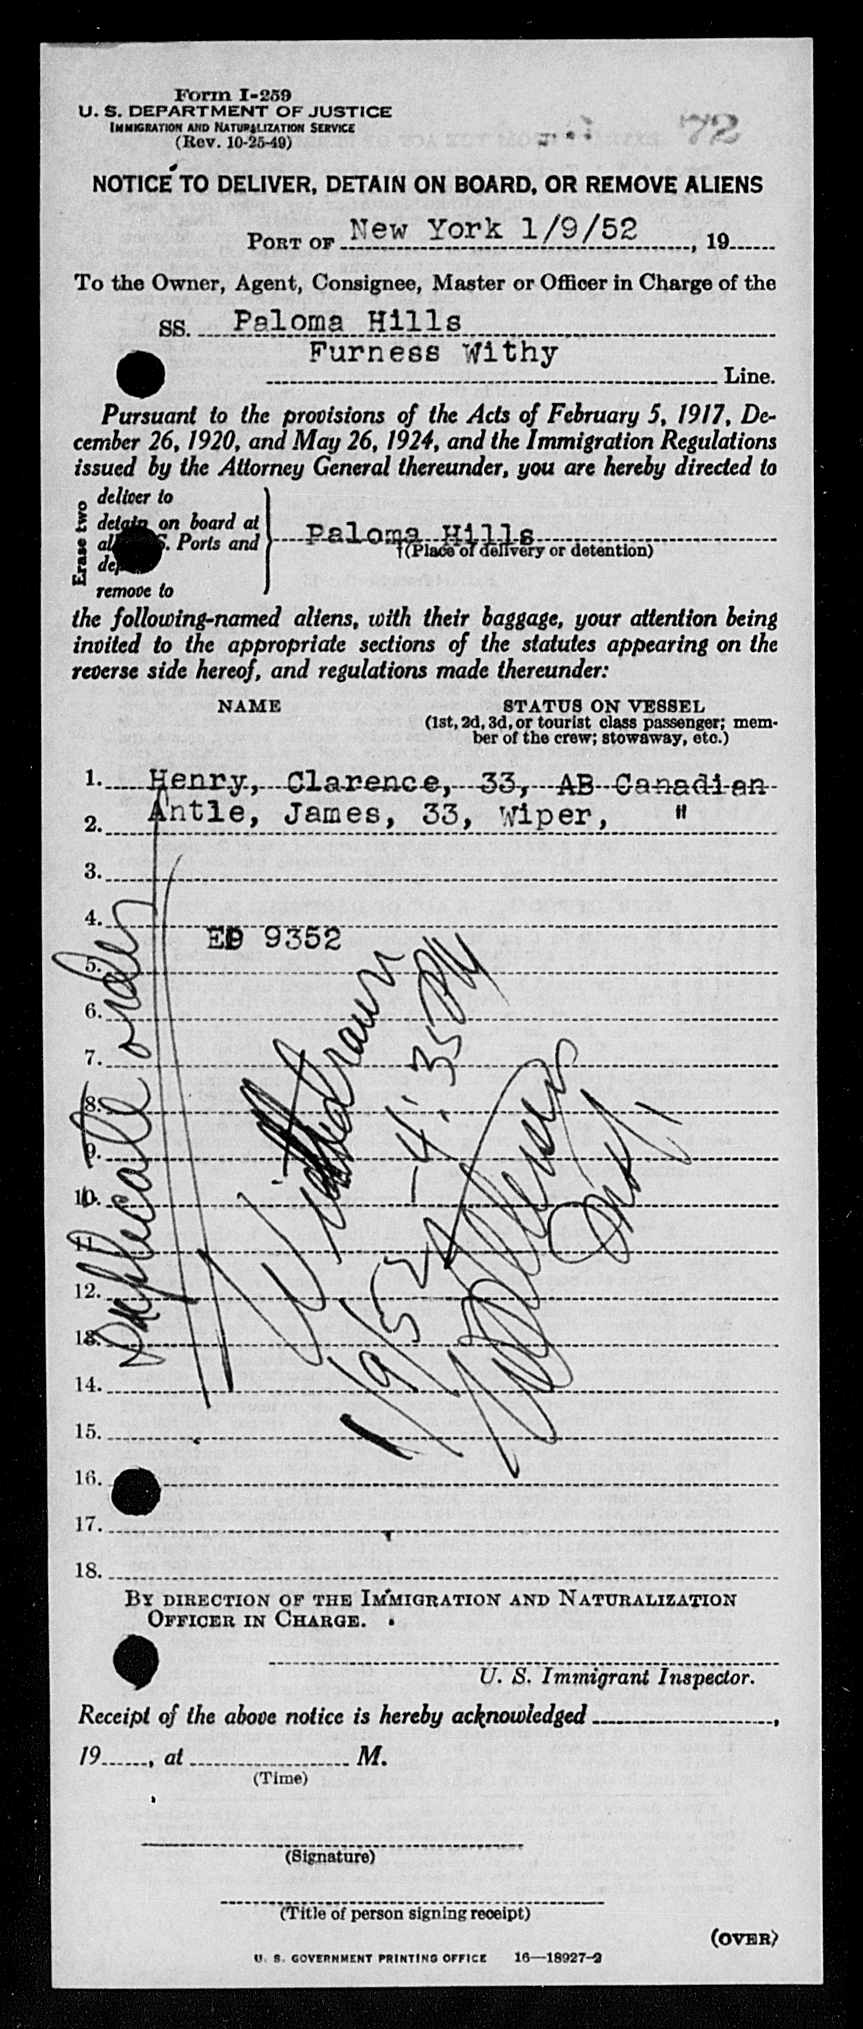 72
Form I-259
U. S. DEPARTMENT OF JUSTICE
IMMIGRATION AND NATURALIZATION SERVICE
(Rev. 10-25-49)
NOTICE TO DELIVER, DETAIN ON BOARD, OR REMOVE ALIENS
PORT OF New York 1/9/52, 19
To the Owner, Agent, Consignee, Master or Officer in Charge of the
SS. Paloma Hills
Furness Withy
Line.
Pursuant to the provisions of the Acts of February 5, 1917, De-
cember 26, 1920, and May 26, 1924, and the Immigration Regulations
issued by the Attorney General thereunder, you are hereby directed to
Erase two
deliver to
detain on board at
all S. Ports and
remove to
Paloma Hills
†(Place of delivery or detention)
the following-named aliens, with their baggage, your attention being
invited to the appropriate sections of the statutes appearing on the
reverse side hereof, and regulations made thereunder:
NAME STATUS ON VESSEL
(1st, 2d, 3d, or tourist class passenger; mem-
ber of the crew; stowaway, etc.)
1. Henry, Clarence, 33, AB Canadian
2. Antle, James, 33, Wiper, "
3.
4.
ED 9352
5.
6.
7.
8.
9.
10.
11.
12.
13.
14.
15.
16.
17.
18.
Duplicate order
Withdrawn
1/9/52 - 4:35 PM
BY DIRECTION OF THE IMMIGRATION AND NATURALIZATION
OFFICER IN CHARGE.
U. S. Immigrant Inspector.
Receipt of the above notice is hereby acknowledged
19, at M.
(Time)
(Signature)
(Title of person signing receipt)
(OVER)
U. S. GOVERNMENT PRINTING OFFICE 16—18927-2